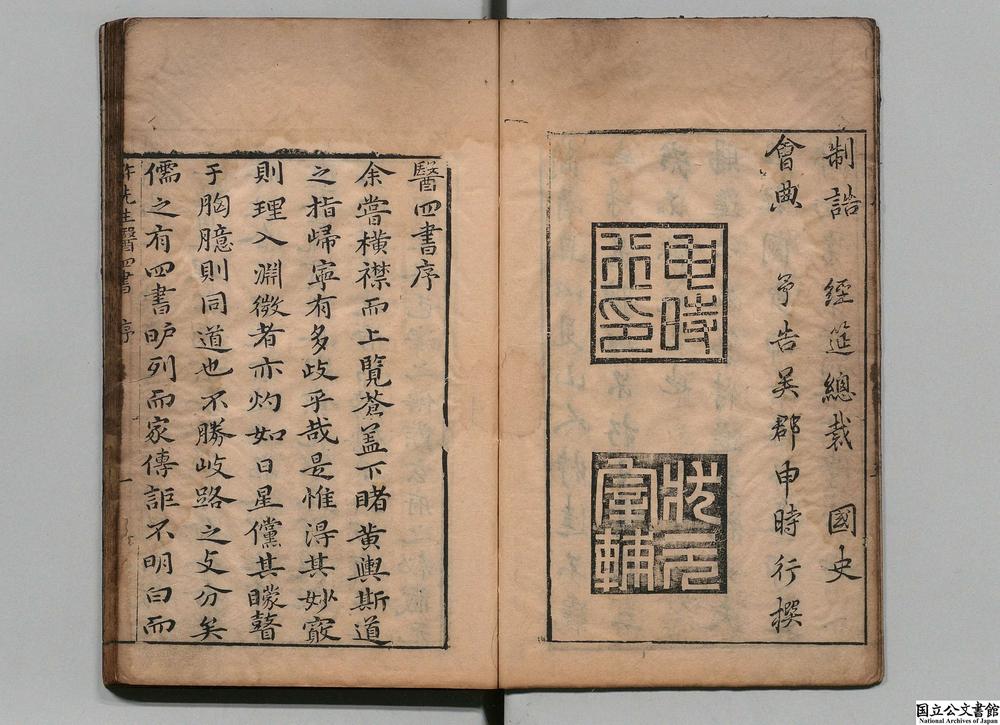 制誥 經筵總裁 國史
會典 予告吳郡申時行撰
申時
行印
狀元
宰輔
醫四書序
余嘗橫襟而上覽蒼盖下睹黄輿斯道
之指歸寧有多歧乎哉是惟得其妙竅
則理入淵微者亦灼如日星儻其矇瞽
于胸臆則同道也不勝岐路之
分矣
儒之有四書昈列而家傳詎不明白而
許先生醫四書 序 一
国立公文書館
National Archives of Japan